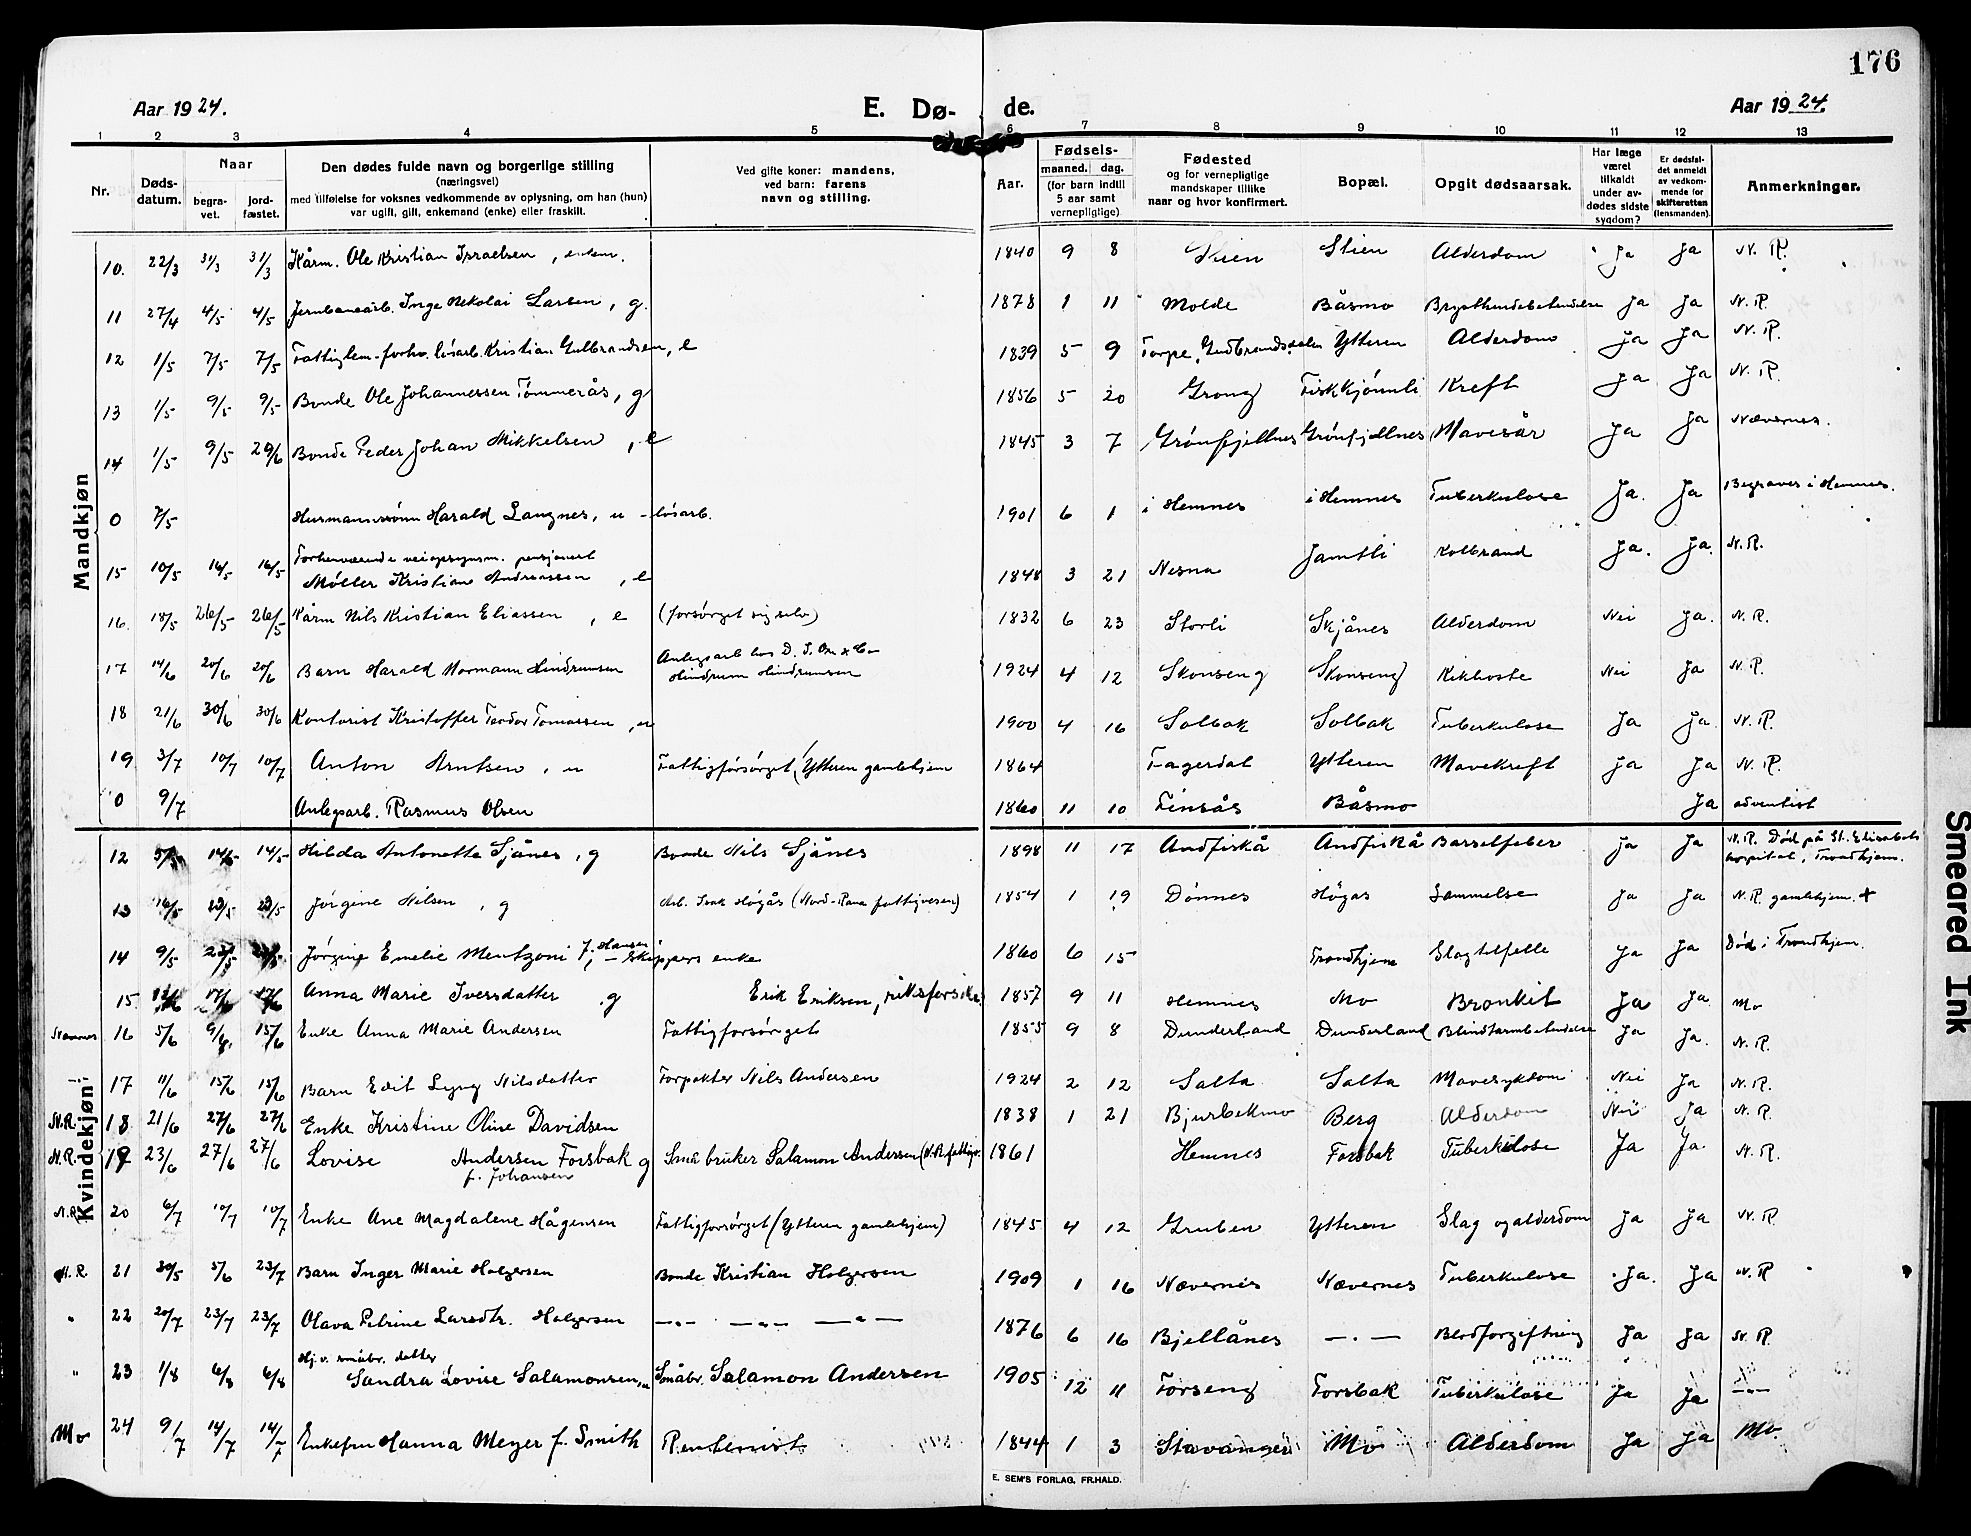 176
Aar 1924. E. Dø- de. Aar 1924.
1 2 3 4 5 6 7 8 9 10 11 12 13
Nr. Døds-datum. Naar begra-vet. jord-fæstet. Den dødes fulde navn og borgerlige stilling (næringsvei) med tilføielse for voksnes vedkommende av oplysning, om han (hun) var ugift, gift, enkemand (enke) eller fraskilt. Ved gifte koner: mandens, ved barn: farens navn og stilling. Aar. Fødsels- maaned. dag. (for barn indtil 5 aar samt vernepligtige) Fødested og for vernepligtige mandskaper tillike naar og hvor konfirmert. Bopæl. Opgit dødsaarsak. Har læge været tilkaldt under av-dødes sidste sygdom? Er dødsfal-det anmeldt av vedkom-mende for skifteretten (lensmanden). Anmerkninger.
Mandkjøn
10. 22/3 31/3 31/3 Kårm. Ole Kristian Israelsen, 1840 9 8 Stien Stien Alderdom Ja Ja N. R.
11 27/4 4/5 4/5 Jernbanearb. Inge Nikolai Larsen, g. 1878 1 11 Molde Båsmo Brysthindebetendelse Ja Ja N. R.
12 1/5 7/5 7/5 Fattiglem - forhv. løsarb. Kristian Gulbrandsen, e 1839 5 9 Torpe, Gudbrandsdalen Ytteren Alderdom Ja Ja N. R.
13 1/5 9/5 9/5 Bonde Ole Johannessen Tømmerås, g 1856 5 20 Grong Fiskkjønnli Kreft Ja Ja N. R.
14 1/5 9/5 29/6 Bonde Peder Johan Mikkelsen, e 1845 3 7 Grønfjellnes Grønfjellnes Mavesår Ja Ja Nævernes.
0 7/5 Husmanssønn Harald Langnes, u - løsarb. 1901 6 1 i Hemnes i Hemnes Tuberkulose Ja. Ja Begraves i Hemnes.
15 10/5 16/5 16/5 Forhenværende veiopsynsm. pensjonert Møller Kristian Andreassen, e 1848 3 21 Nesna Jamtli Kolbrand Ja. Ja. N. R.
16. 18/5 26/5 26/5 Kårm Nils Kristian Eliassen, e (forsørget sig selv) 1832 6 23 Storli Skjånes Alderdom Nei Ja. N. R.
17 14/6 20/6 20/6 Barn Harald Normann Hindrumsen Anlegsarb hos D. I. O. Co Hindrum Hindrumsen 1924 4 12 Skonseng Skonseng Kikhoste Nei Ja N. R.
18 21/6 30/6 30/6 Kontorist Kristoffer Teodor Tomassen, u 1900 4 16 Solbak Solbak Tuberkulose Ja Ja. N. R.
19 3/7 10/7 10/7 Anton Arntsen, u Fattigforsørget (Ytteren gamlehjem 1864 Fagerdal Ytteren Mavekreft Ja Ja N. R.
0 9/7 Anlegsarb. Rasmus Olsen 1860 11 10 Finsås Båsmo Ja adventist
Kvindekjøn
12 5/5 14/5 14/5 Hilda Antonette Sjånes, g Bonde Nils Sjånes 1898 11 17 Andfiskå Andfiskå Barselfeber Ja Ja N. R. Død på St. Elisabets hospital, Trondhjem.
13 16/5 23/5 23/5 Jørgine Nilsen, g Arb. Isak Høgås (Nord-Rana fattigvesen) 1854 1 19 Dønnes Høgås Lammelse Ja Ja N. R. gamlehjem. +
14 9/5 23/5 23/5 Jørgine Emelie Mentzoni f. Hansen - Skippers enke 1860 6 15 Trondhjem Slagtilfelle Ja Ja Død i Trondhjem.
15 12/6 17/6 17/6 Anna Marie Iversdatter, g Erik Eriksen, 1857 9 11 Hemnes Mo Bronkit Ja Ja. Mo
Nævernes 16 5/6 9/6 15/6 Enke Anna Marie Andersen Fattigforsørget 1855 9 8 Dunderland Dunderland Blindtarmbetendelse Ja Ja. N. R.
17 11/6 15/6 15/6 Barn Edit Lyng Nilsdatter Forpakter Nils Andersen 1924 2 12 Salta Salta Mavesykdom Nei Ja N. R.
N.R. 18 21/6 27/6 27/6 Enke Kristine Oline Davidsen 1838 1 21 Bjurbekmo Berg Alderdom Nei Ja N. R.
N.R. 19 23/6 27/6 27/6 Lovise Andersen Forsbak g f. Johansen Småbruker Salamon Andersen (N. R. fattigv. 1861 Hemnes Forsbak Tuberkulose Ja Ja. N. R.
N.R. 20 6/7 10/7 10/7 Enke Ane Magdalene Hågensen Fattigforsørget (Ytteren gamlehjem) 1845 4 12 Gruben Ytteren Slag og alderdom Ja Ja N. R.
N. R. 21 30/5 5/6 23/7 Barn Inger Marie Holgersen Bonde Kristian Holgersen 1909 1 16 Nævernes Nævernes Tuberkulose Ja. Ja N. R
" 22 20/7 23/7 23/7 Olava Petrine Larsdtr. Holgersen —"— —"— —"— 1876 6 16 Bjellånes —"— Blodforgiftning Ja Ja N. R
" 23 1/8 6/8 6/8 Hj.v. småbr. datter Sandra Lovise Salamonsen, u Småbr. Salamon Andersen 1905 12 11 Forseng Forsbak Tuberkulose Ja Ja —"—
Mo 24 9/7 14/7 14/7 Enkefru Hanna Meyer f. Smith Rentenist 1844 1 3 Stavanger Mo Alderdom Ja Ja Mo.
E. SEM'S FORLAG, FR.HALD.
Smeared Ink